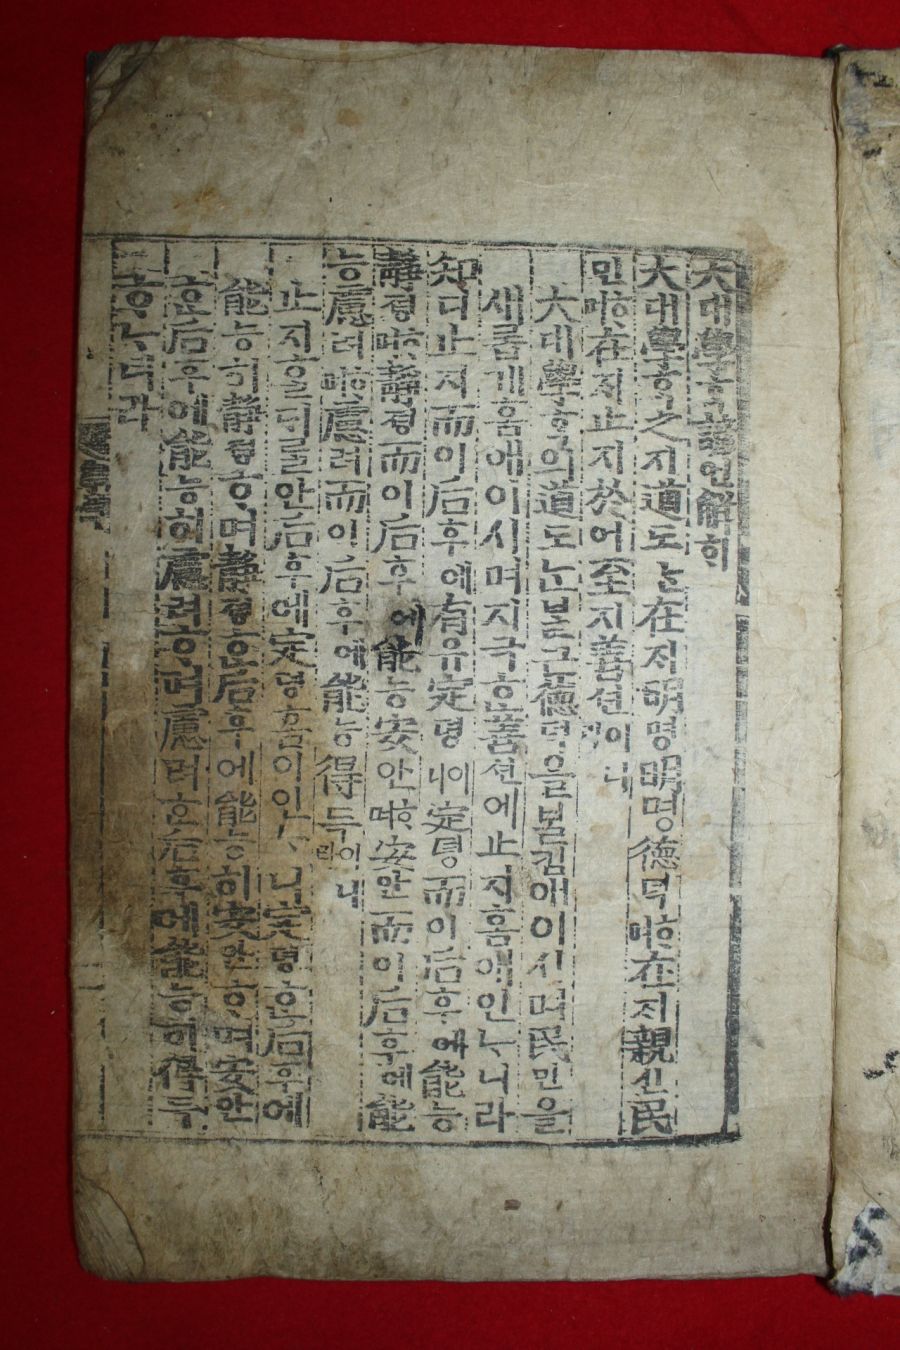 大대學ᄒᆞᆨ諺언解ᄒᆡ
大대學ᄒᆞᆨ之지道도ᄂᆞᆫ在ᄌᆡ明명明명德덕ᄒᆞ며在ᄌᆡ親신民
민ᄒᆞ며在ᄌᆡ止지於어至지善션이니라
大대學ᄒᆞᆨ의道도ᄂᆞᆫ ᄇᆞᆯ근德덕을ᄇᆞᆯ킴애이시며民민을
새롭게홈애이시며지극ᄒᆞᆫ善션에止지홈애인ᄂᆞ니라
知디止지而이后후에有유定뎡이니定뎡而이后후에能능
靜졍ᄒᆞ며靜졍而이后후에能능安안ᄒᆞ며安안而이后후에能
능慮려ᄒᆞ며慮려而이后후에能능得득이니라
止지ᄒᆞᆯᄃᆡ를안后후에定뎡홈이인ᄂᆞ니定뎡ᄒᆞᆫ后후에
能능히靜졍ᄒᆞ며靜졍ᄒᆞᆫ后후에能능히安안ᄒᆞ며安안
ᄒᆞᆫ后후에能능히慮려ᄒᆞ며慮려ᄒᆞᆫ后후에能능히得득
ᄒᆞᄂᆞ니라